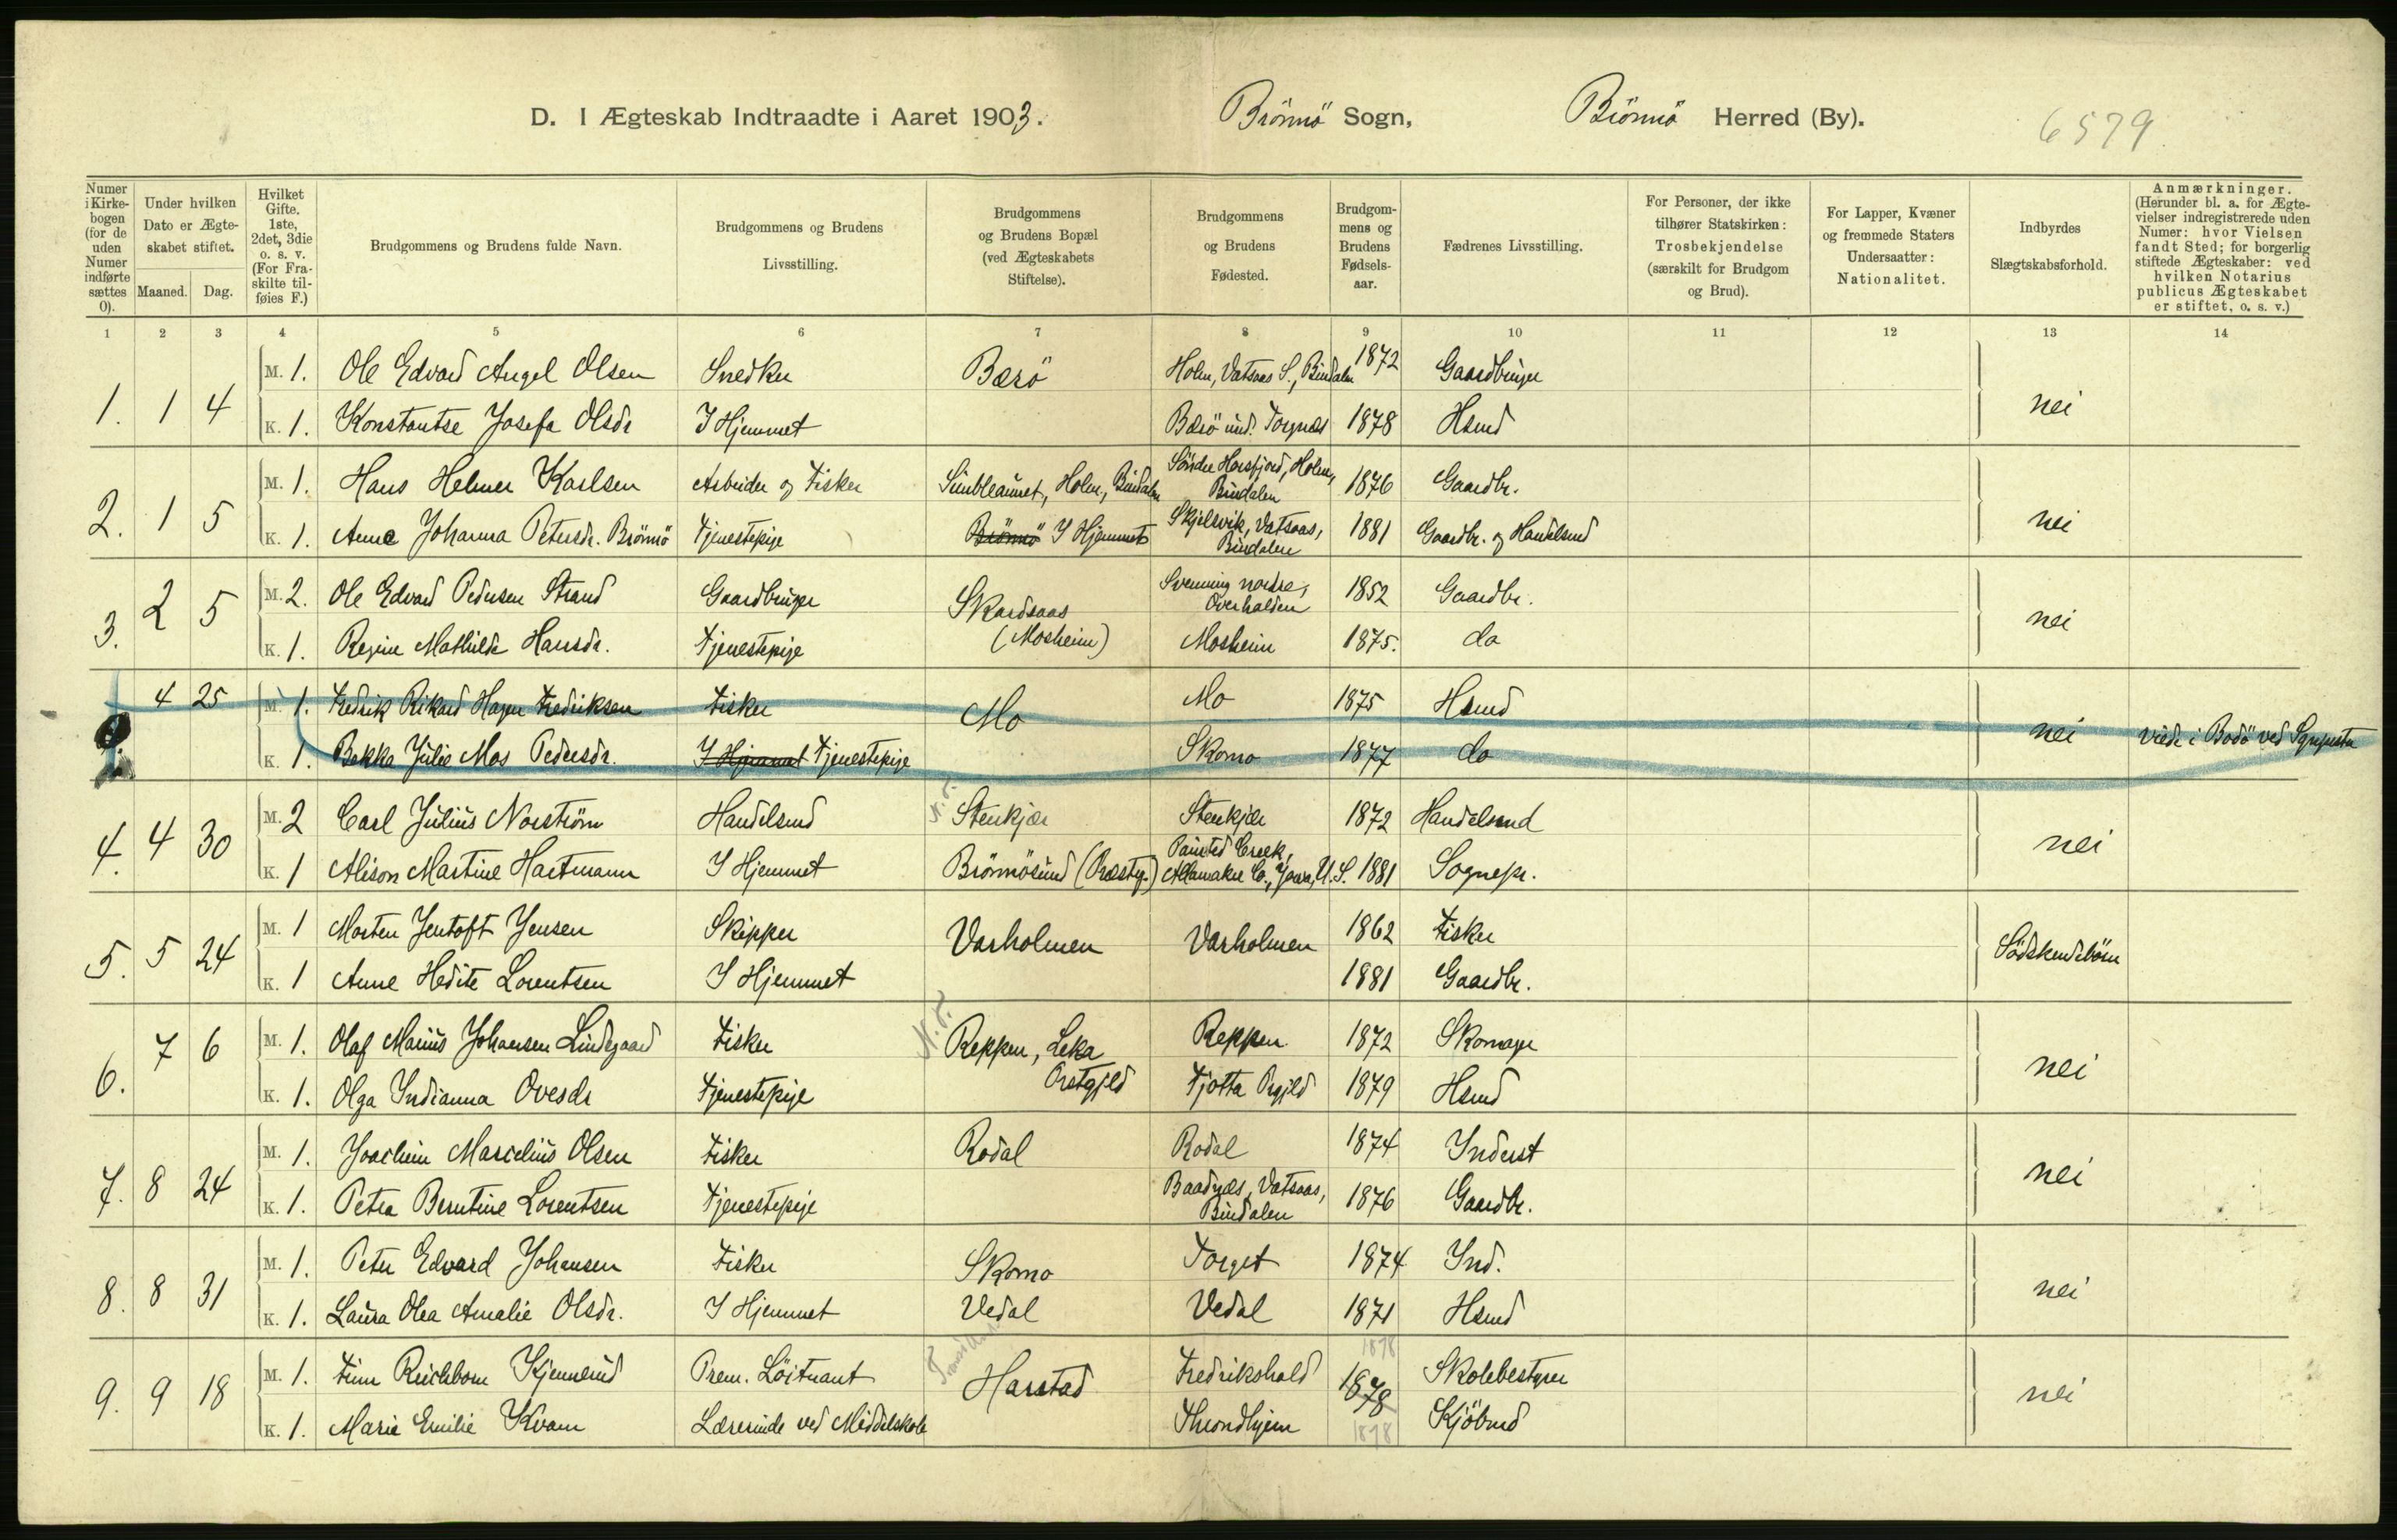 D. I Ægteskab Indtraadte i Aaret 1903. Brönnö Sogn, Brönnö Herred (By). 6579
Numer i Kirkebogen (for de uden Numer indførte sættes 0).
Under hvilken Dato er Ægteskabet stiftet. Maaned. Dag.
Hvilket Gifte. 1ste, 2det, 3die o. s. v. (For Fraskilte tilføies F.)
Brudgommens og Brudens fulde Navn.
Brudgommens og Brudens Livsstilling.
Brudgommens og Brudens Bopæl (ved Ægteskabets Stiftelse).
Brudgommens og Brudens Fødested.
Brudgommens og Brudens Fødselsaar.
Fædrenes Livsstilling.
For Personer, der ikke tilhører Statskirken: Trosbekjendelse (særskilt for Brudgom og Brud).
For Lapper, Kvæner og fremmede Staters Undersaatter: Nationalitet.
Indbyrdes Slægtskabsforhold.
Anmærkninger. (Herunder bl. a. for Ægtevielser indregistrerede uden Numer: hvor Vielsen fandt Sted; for borgerlig stiftede Ægteskaber: ved hvilken Notarius publicus Ægteskabet er stiftet, o. s. v.)
1 2 3 4 5 6 7 8 9 10 11 12 13 14
1. 1 4 M. 1. Ole Edvard Angel Olsen Snedker Bærö Holm, Vatsaas S., Bindalen 1872 Gaardbruger nei
K. 1. Konstantse Josefa Olsdr I Hjemmet Bærö und. Torgnes 1878 Hsmd
2. 1 5 M. 1. Hans Helmer Karlsen Arbeider og Fisker Simbleaunet, Holm, Bindalen Söndre Horsfjord, Holm, Bindalen 1876 Gaardbr. nei
K. 1. Anna Johanna Petersdr. Brönnö Tjenestepige Brönnö I Hjemmet Skjelsvik, Vatsaas, Bindalen 1881 Gaardbr. og Handelsmd
3. 2 5 M. 2. Ole Edvard Pedersen Strand Gaardbruger Skardsaas (Mosheim) Svenning nordre, Overhalden 1852 Gaardbr. nei
K. 1. Regine Mathilde Hansdr. Tjenestepige Mosheim 1875. do
4 25 M. 1. Fredrik Rikard Hagen Fredriksen Fisker Mo Mo 1875 Hsmd nei viede i Bodö ved Sgnprsta
K. 1. Bekka Julie Mos Pedersdr. I Hjemmet Tjenestepige Skomo 1877 do
4. 4 30 M. 2 Carl Julius Norström Handelsmd N.T. Stenkjær Stenkjær 1872 Handelsmd nei
K. 1 Alison Martine Hartmann I Hjemmet Brönnösund (Præstg.) Painted Creek, Allamakee Co., Jowa, U.S. 1881 Sognepr.
5. 5 24 M. 1 Morten Jentoft Jensen Skipper Varholmen Varholmen 1862 Fisker Södskendebörn
K. 1 Anne Hedite Lorentsen I Hjemmet 1881 Gaardbr.
6. 7 6 M. 1. Olaf Marius Johansen Lindgaard Fisker N.T. Reppen, Leka Præstgjeld Reppen 1872 Skomager nei
K. 1. Olga Indianna Ovesdr Tjenestepige Tjotta Prgjeld 1879 Hsmd
7. 8 24 M. 1. Joachim Marselius Olsen Fisker Rodal Rodal 1874 Inderst nei
K. 1. Petra Berntine Lorentsen Tjenestepige Baadnæs, Vatsaas, Bindalen 1876 Gaardbr.
8. 8 31 M. 1. Peter Edvard Johansen Fisker Skomo Torget 1874 Ind. nei
K. 1. Laura Olea Amalie Olsdr. I Hjemmet Vedal Vedal 1871 Hsmd
9. 9 18 M. 1. Finn Reichborn Kjennerud Prem. Löitnant Harstad Fredrikshald 1878 1878 Skolebestyrer nei
K. 1. Marie Emilie Kvam Lærerinde ved Middelskole Throndhjem 1878 Kjöbmd